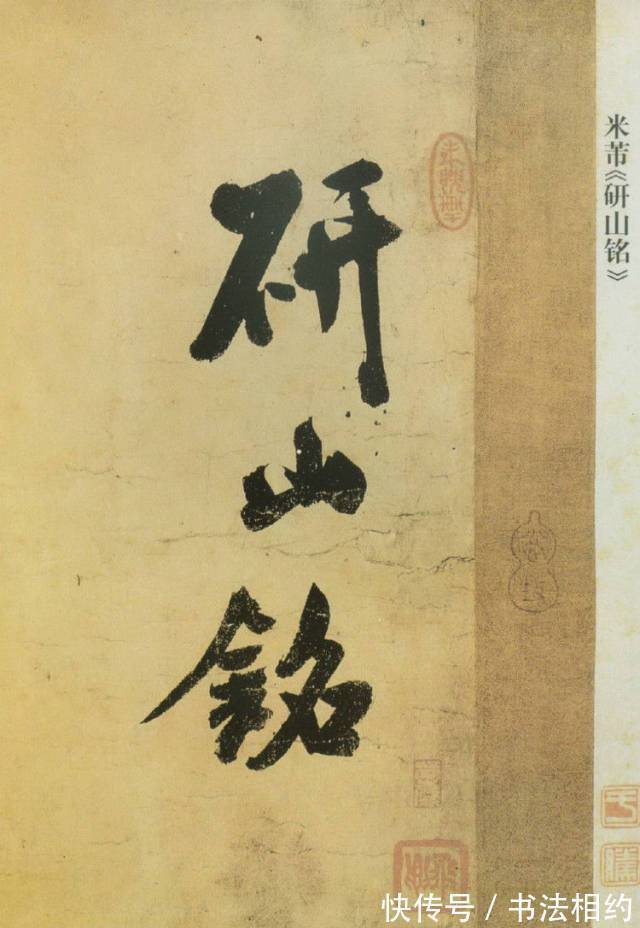 米芾《研山铭》
研山銘
快传号 / 书法相约